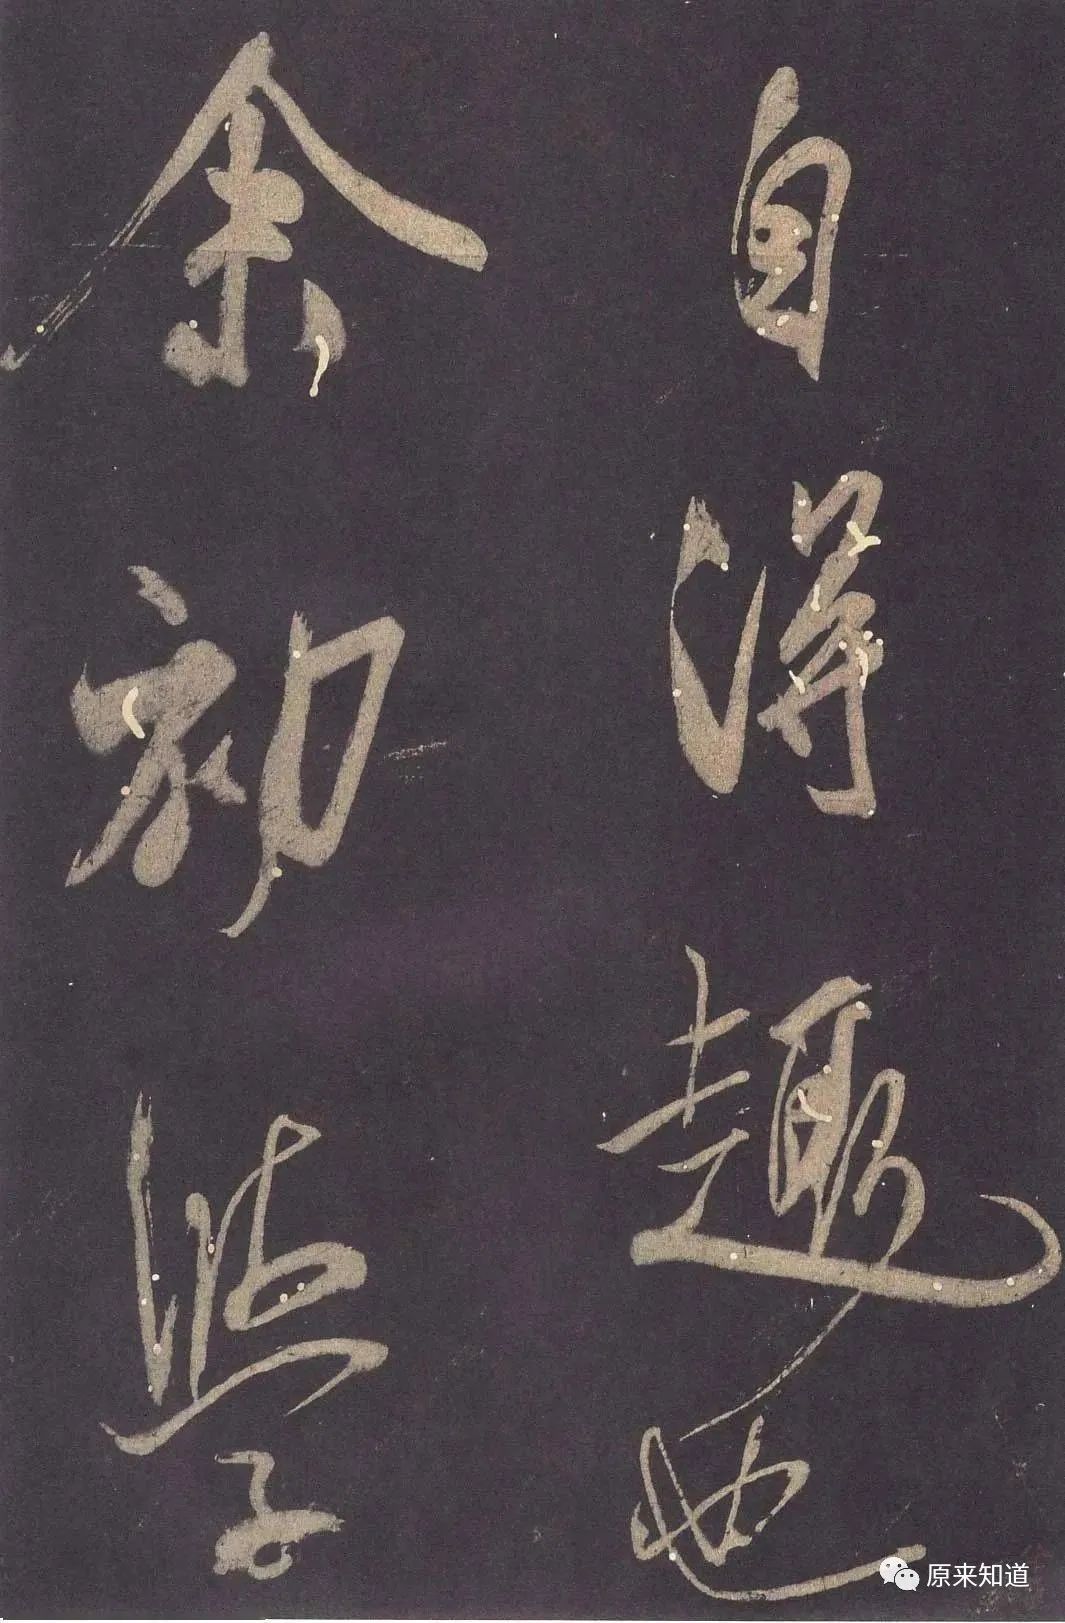 自得趣也
余初學
原来知道